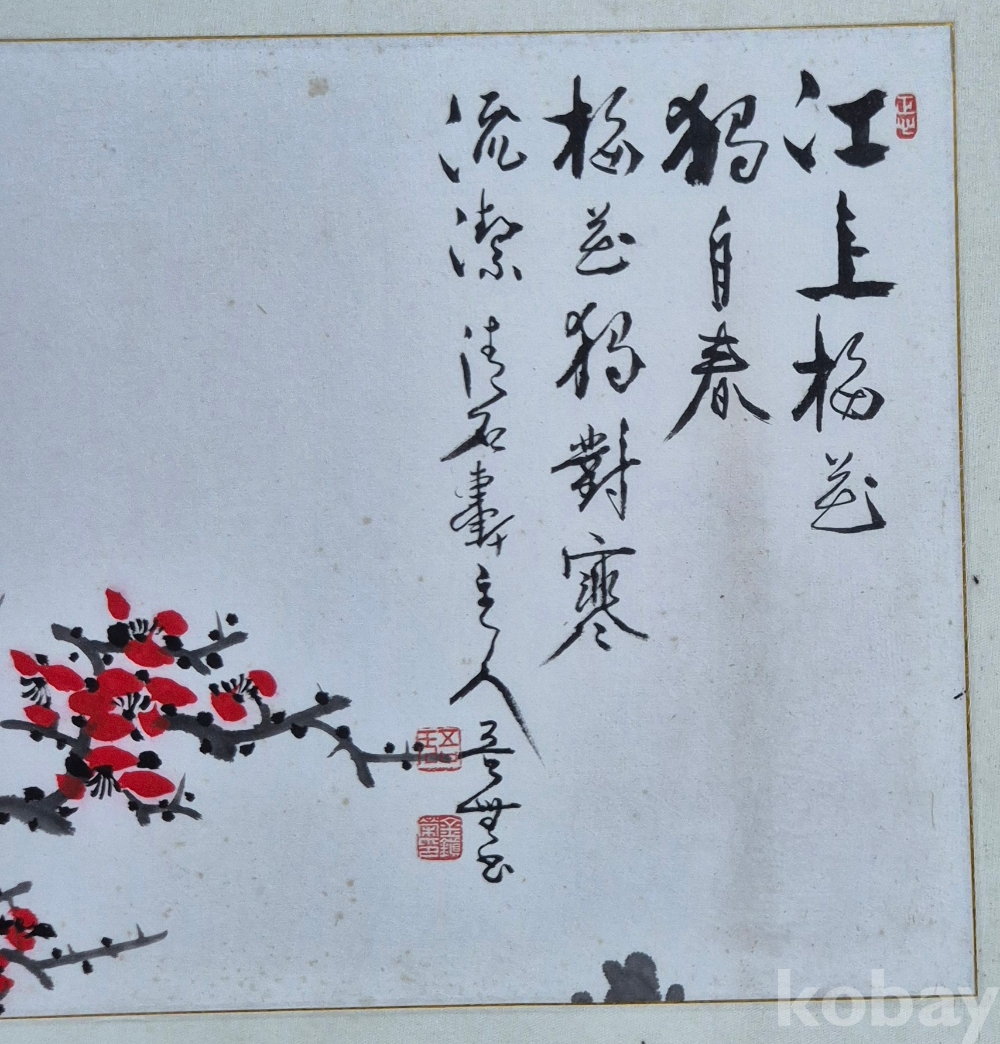 江上梅花
獨自春
梅花獨對寒
流潔 清石畫室主人
金鎮
kobay